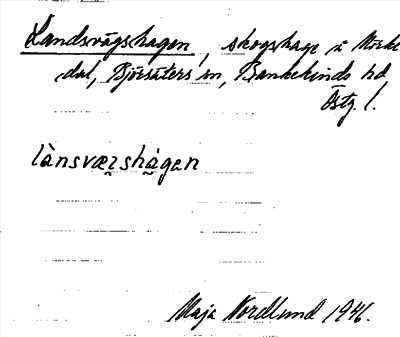 Landsvägshagen, skogshage i Mörke
dal, Björsäters sn, Bankekinds hd,
Östg. l.
lànsværshàgen
Maja Nordlund 1946.